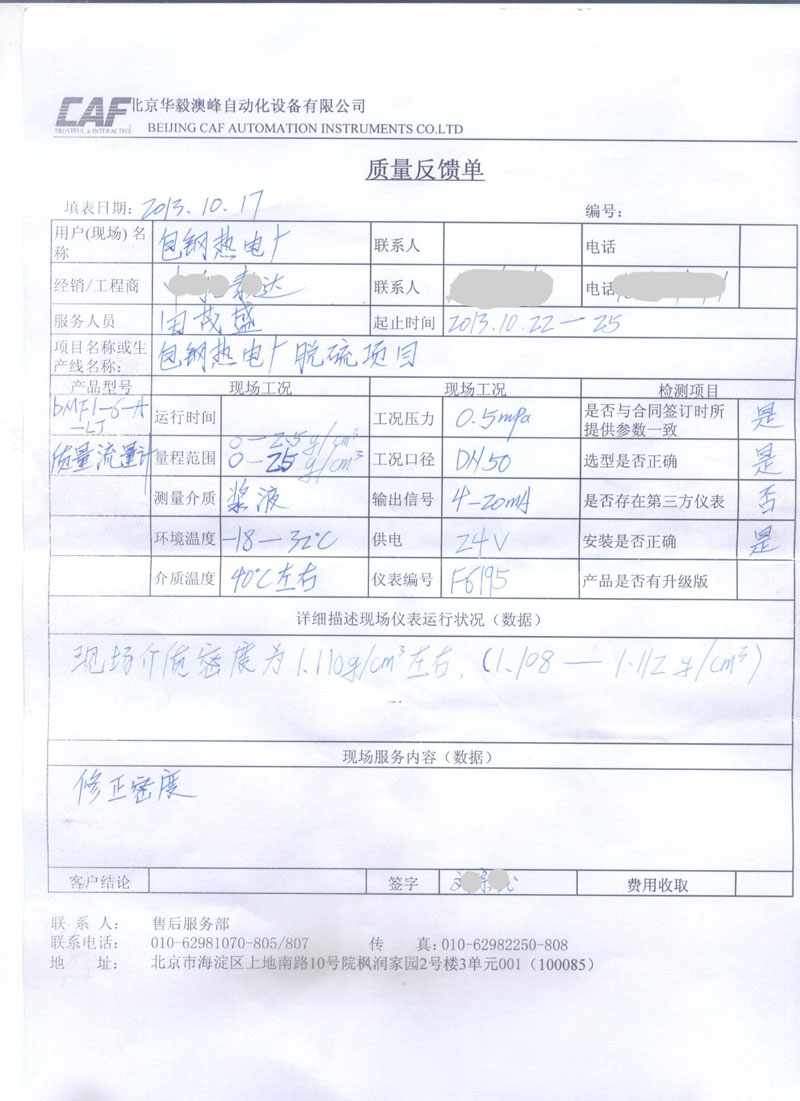 CAF 北京华毅澳峰自动化设备有限公司
TRUSTFUL & INTERACTIVE BEIJING CAF AUTOMATION INSTRUMENTS CO.LTD
质量反馈单
填表日期: 2013.10.17 编号:
用户(现场) 名称 包钢热电厂 联系人 电话
经销/工程商 达 联系人 电话
服务人员 田茂盛 起止时间 2013.10.22—25
项目名称或生产线名称: 包钢热电厂脱硫项目
产品型号 现场工况 现场工况 检测项目
DMF1-6-A-LJ 运行时间 工况压力 0.5mpa 是否与合同签订时所提供参数一致 是
0—2.5g/cm³
质量流量计 量程范围 0—25 g/cm³ 工况口径 DN50 选型是否正确 是
测量介质 浆液 输出信号 4-20mA 是否存在第三方仪表 否
环境温度 -18—32℃ 供电 24V 安装是否正确 是
介质温度 40℃左右 仪表编号 F6195 产品是否有升级版
详细描述现场仪表运行状况（数据）
现场介质密度为1.110g/cm³左右,(1.108—1.112g/cm³)
现场服务内容（数据）
修正密度
客户结论 签字 费用收取
联 系 人: 售后服务部
联系电话: 010-62981070-805/807 传 真: 010-62982250-808
地 址: 北京市海淀区上地南路10号院枫润家园2号楼3单元001（100085）